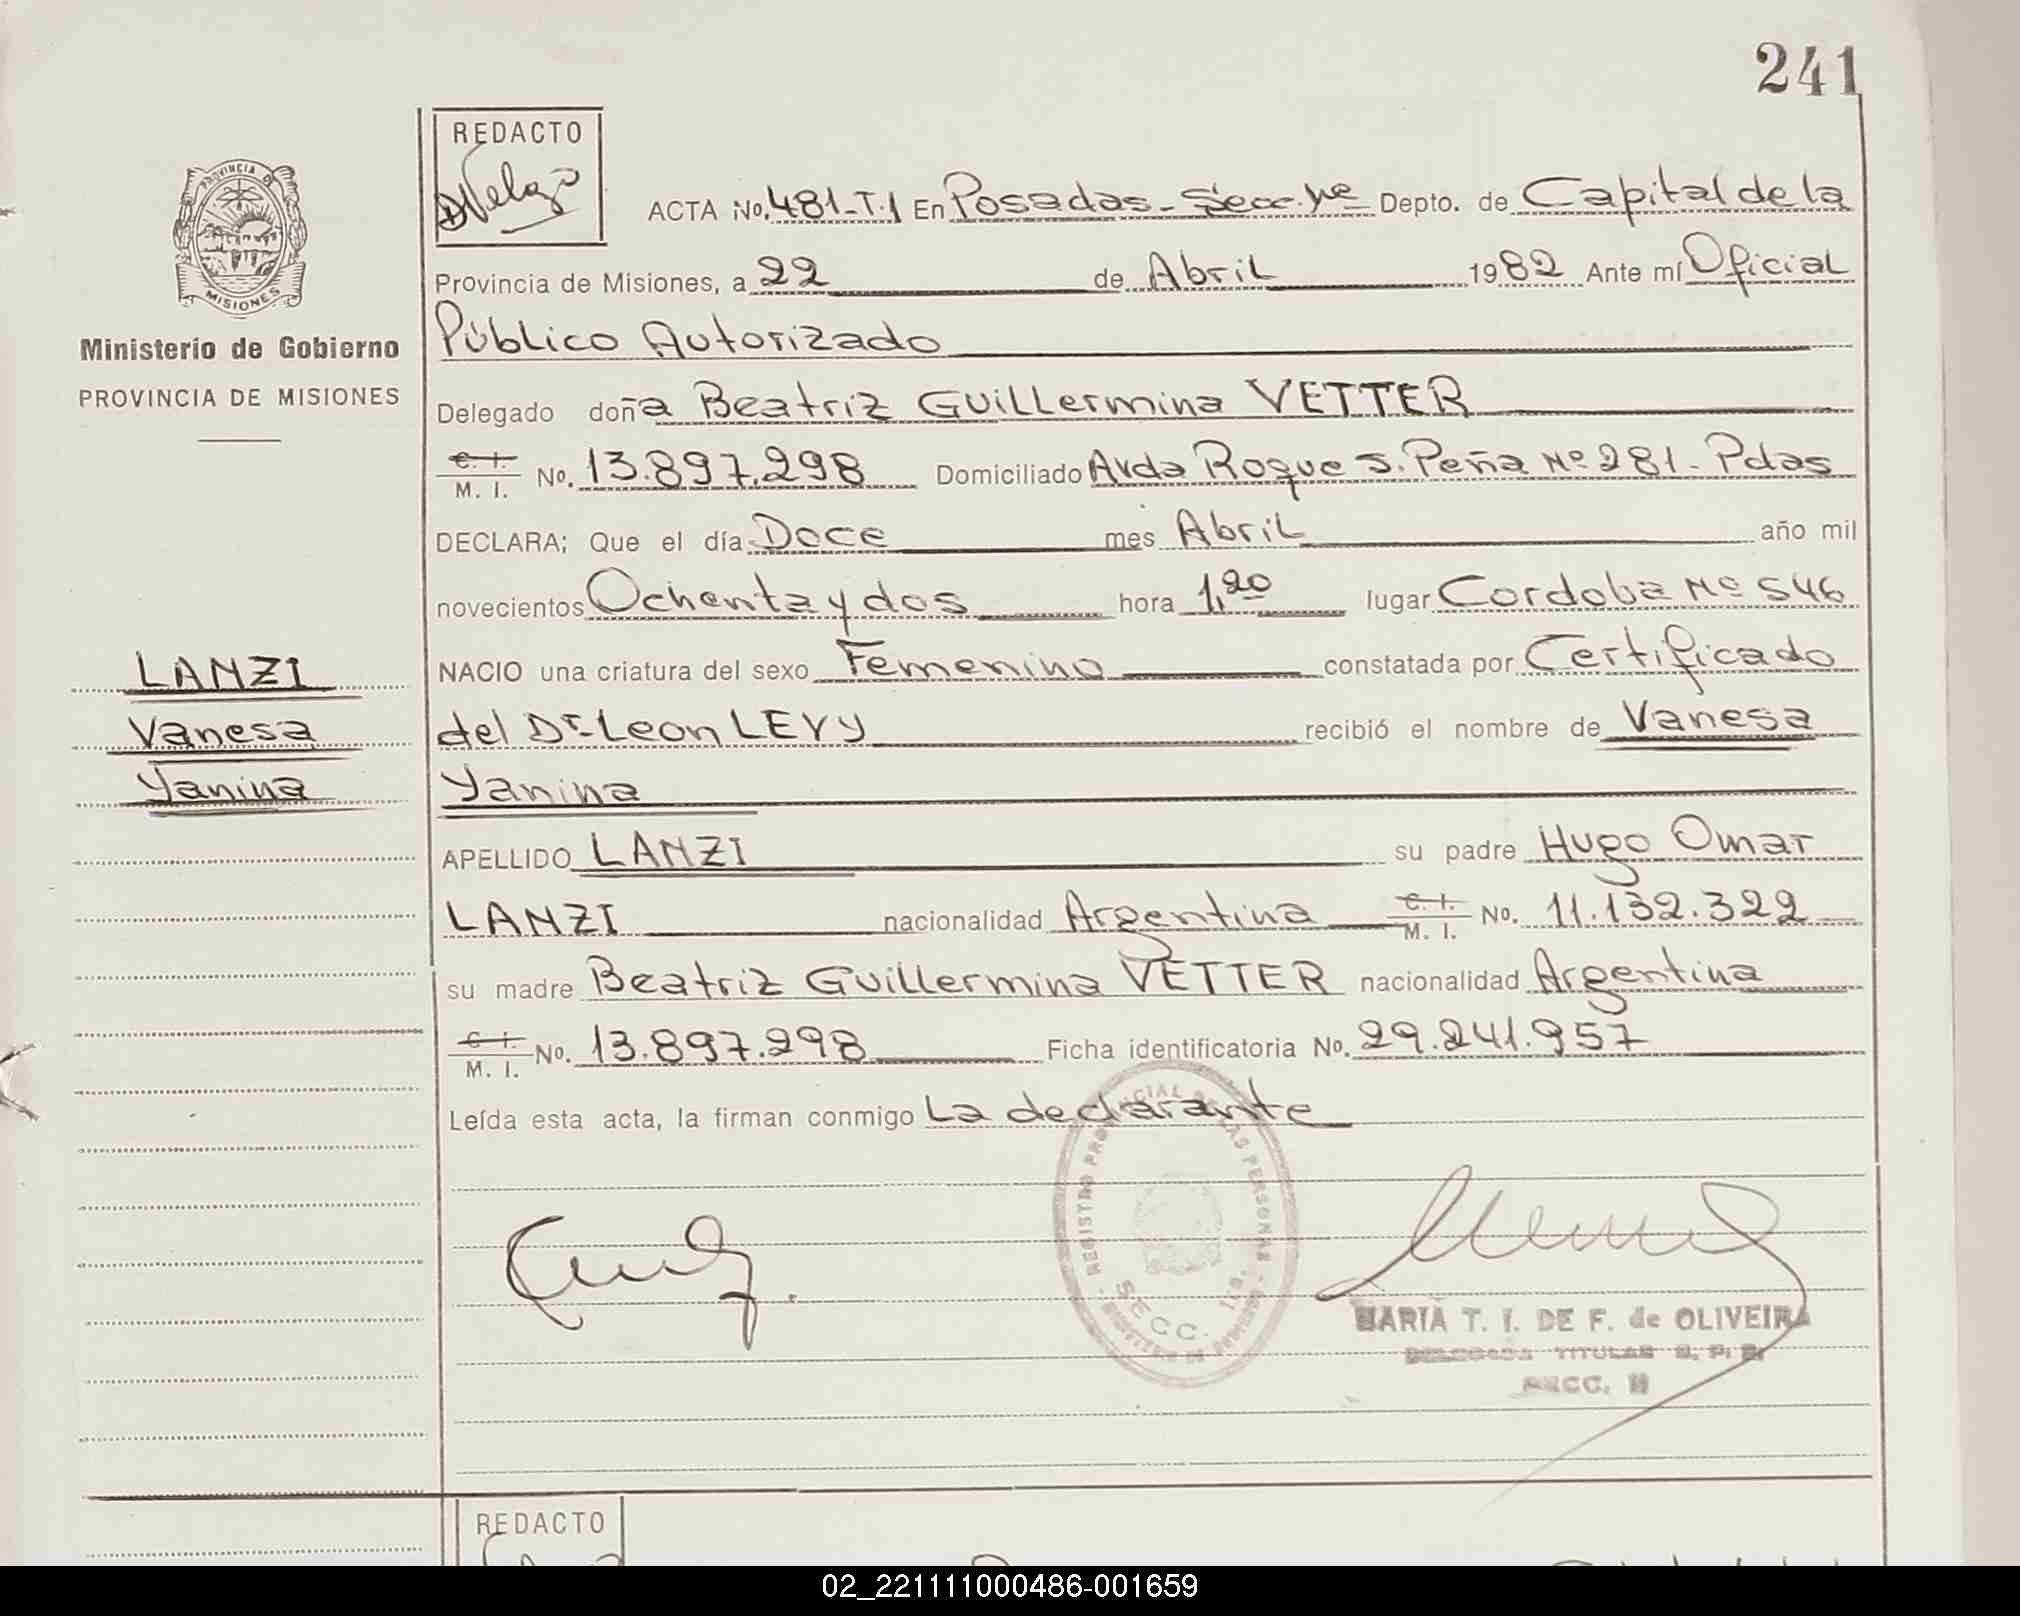 241
REDACTO
PROVINCIA DE
MISIONES
Ministerio de Gobierno
PROVINCIA DE MISIONES
LANZI
Vanesa
Yanina
ACTA No. 481-T.I En Posadas - Secc. 1ra Depto. de Capital de la
Provincia de Misiones, a 22 de Abril 1982 Ante mí Oficial
Público Autorizado
Delegado doña Beatriz Guillermina VETTER
C. I. M. I. No. 13.897.298 Domiciliado Avda Roque S. Peña Nº 281 - Pdas
DECLARA; Que el día Doce mes Abril año mil
novecientos Ochenta y dos hora 1,20 lugar Cordoba Nº 546
NACIO una criatura del sexo Femenino constatada por Certificado
del Dr. Leon LEVY recibió el nombre de Vanesa
Yanina
APELLIDO LANZI su padre Hugo Omar
LANZI nacionalidad Argentina C. I. M. I. No. 11.132.322
su madre Beatriz Guillermina VETTER nacionalidad Argentina
C. I. M. I. No. 13.897.298 Ficha identificatoria No. 29.241.957
Leída esta acta, la firman conmigo La declarante
REGISTRO PROVINCIAL DE LAS PERSONAS
SECC.
MARIA T. I. DE F. de OLIVEIRA
DELEGADA TITULAR R. P. P.
SECC.
REDACTO
02_221111000486-001659